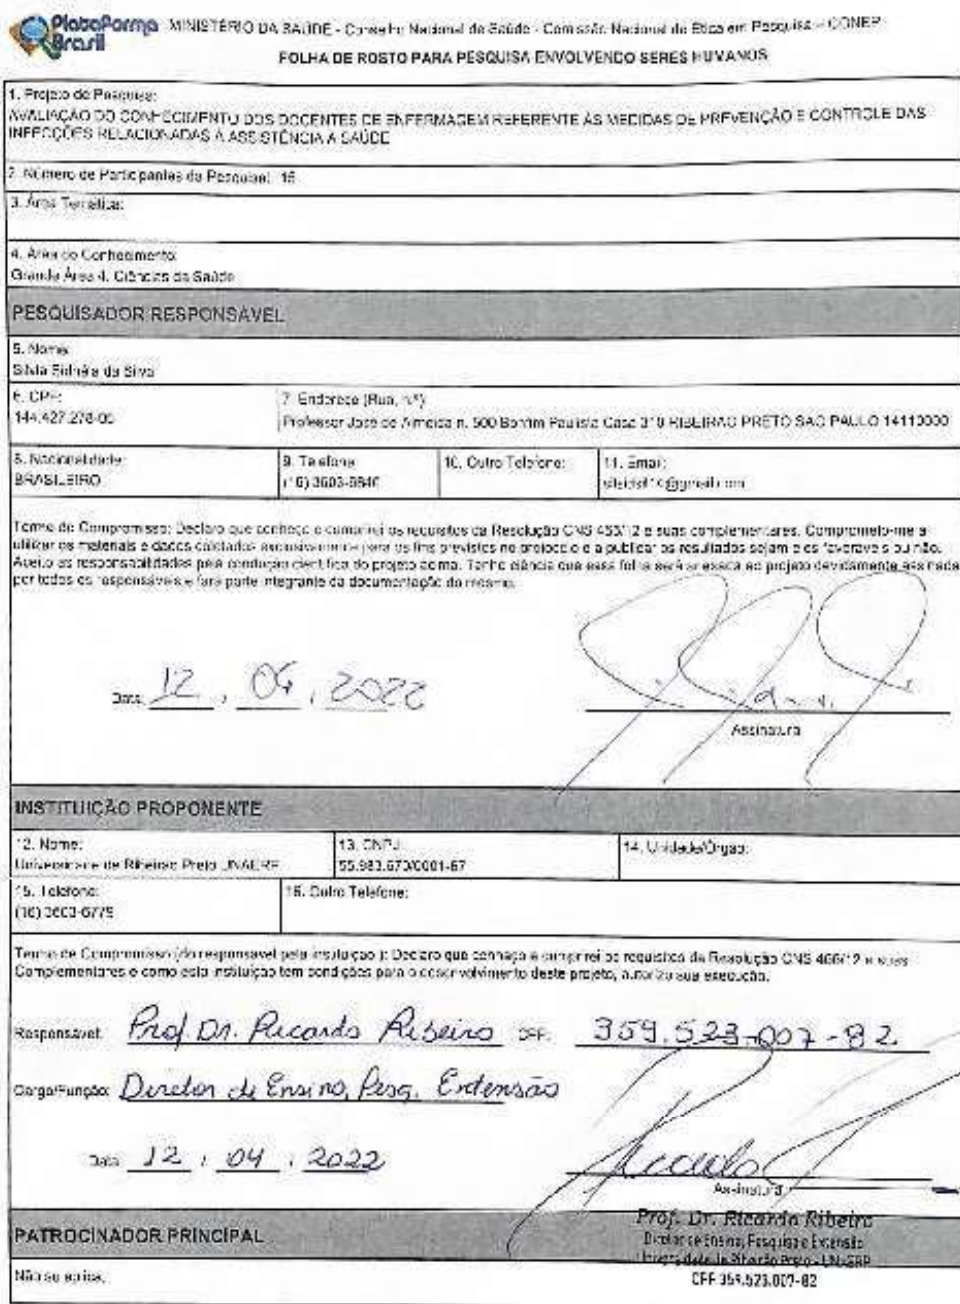 PlataForma Brasil
MINISTÉRIO DA SAÚDE - Conselho Nacional de Saúde - Comissão Nacional de Ética em Pesquisa – CONEP
FOLHA DE ROSTO PARA PESQUISA ENVOLVENDO SERES HUMANOS
1. Projeto de Pesquisa:
AVALIAÇÃO DO CONHECIMENTO DOS DOCENTES DE ENFERMAGEM REFERENTE ÀS MEDIDAS DE PREVENÇÃO E CONTROLE DAS
INFECÇÕES RELACIONADAS À ASSISTÊNCIA A SAÚDE
2. Número de Participantes da Pesquisa: 15
3. Área Temática:
4. Área do Conhecimento:
Grande Área 4. Ciências da Saúde
PESQUISADOR RESPONSÁVEL
5. Nome:
Silvia Sidnéia da Silva
6. CPF: 7. Endereço (Rua, n.º):
144.427.278- Professor José de Almeida n. 500 Bonfim Paulista Casa RIBEIRAO PRETO SAO PAULO 14110000
8. Nacionalidade: 9. Telefone: 10. Outro Telefone: 11. Email:
BRASILEIRO (16) @gmail.com
Termo de Compromisso: Declaro que conheço e cumprirei os requisitos da Resolução CNS 466/12 e suas complementares. Comprometo-me a
utilizar os materiais e dados coletados exclusivamente para os fins previstos no protocolo e a publicar os resultados sejam eles favoráveis ou não.
Aceito as responsabilidades pela condução científica do projeto acima. Tenho ciência que essa folha será anexada ao projeto devidamente assinada
por todos os responsáveis e fará parte integrante da documentação do mesmo.
Data: 12 , 04 , 2022
Assinatura
INSTITUIÇÃO PROPONENTE
12. Nome: 13. CNPJ: 14. Unidade/Órgão:
Universidade de Ribeirao Preto UNAERP 55.983.670/0001-67
15. Telefone: 16. Outro Telefone:
(16) 3603-6779
Termo de Compromisso (do responsável pela instituição ): Declaro que conheço e cumprirei os requisitos da Resolução CNS 466/12 e suas
Complementares e como esta instituição tem condições para o desenvolvimento deste projeto, autorizo sua execução.
Responsável: Prof. Dr. Ricardo Ribeiro CPF: 359.523-007-82
Cargo/Função: Diretor de Ensino, Pesq. Extensão
Data: 12 , 04 , 2022
Ricardo
Assinatura
Prof. Dr. Ricardo Ribeiro
Diretor de Ensino, Pesquisa e Extensão
Universidade de Ribeirão Preto - UNAERP
CPF 359.523.007-82
PATROCINADOR PRINCIPAL
Não se aplica.